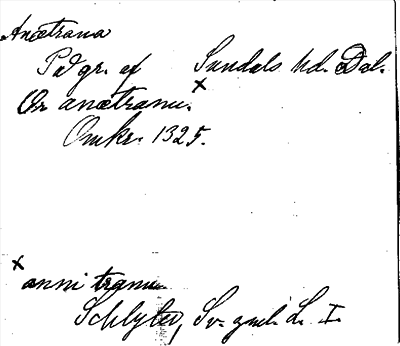 Anætrana
Pdgr. af Sundals hd. Dal.
Ur anætranu. x
Omkr. 1325.
x anni tranu
Schlyter, Sv. gml. L. I.